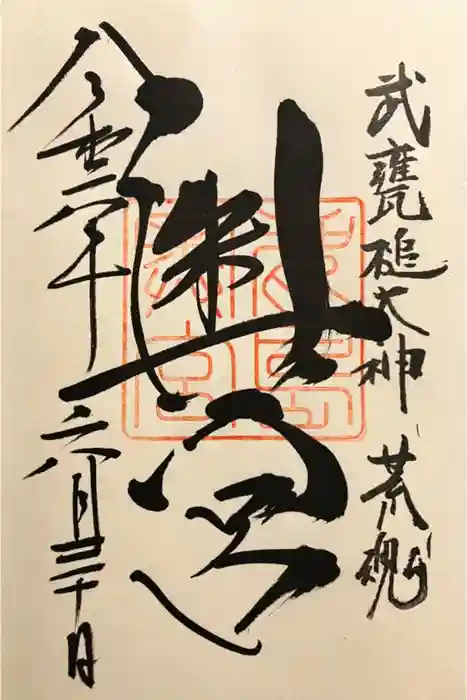 武甕槌大神 荒魂
奥宮
令和六年六月三十日